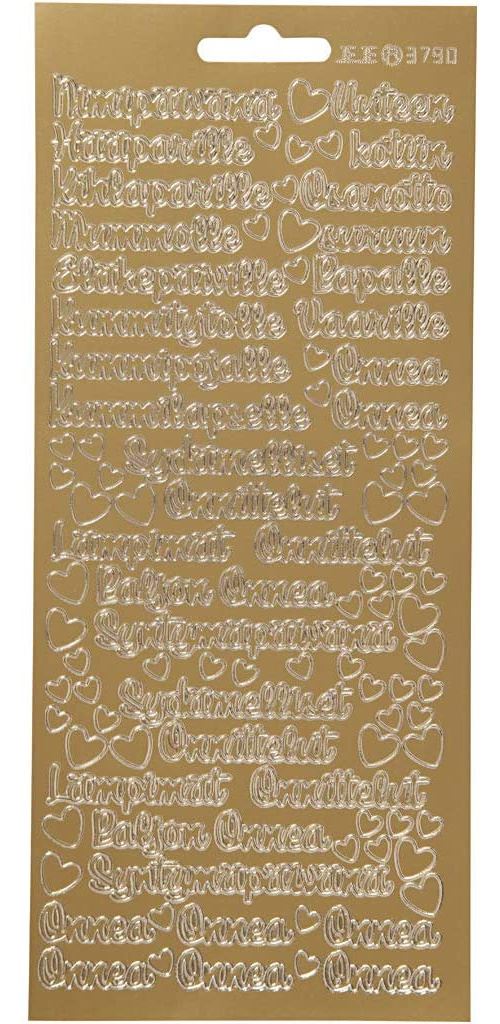 JEJE ® 3790
Nimipäivänä Uuteen
Hääparille kotiin
Kihlaparille Osanotto
Mummolle suruun
Eläkepäiville Papalle
Kummitytölle Vaarille
Kummipojalle Onnea
Kummilapselle Onnea
Sydämelliset
Onnittelut
Lämpimät Onnittelut
Paljon Onnea
Syntymäpäivänä
Sydämelliset
Onnittelut
Lämpimät Onnittelut
Paljon Onnea
Syntymäpäivänä
Onnea Onnea Onnea
Onnea Onnea Onnea